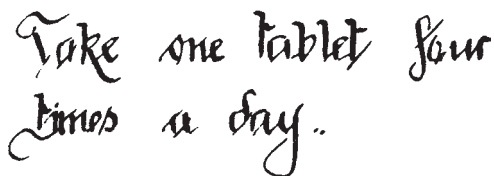 Take one tablet four
times a day..